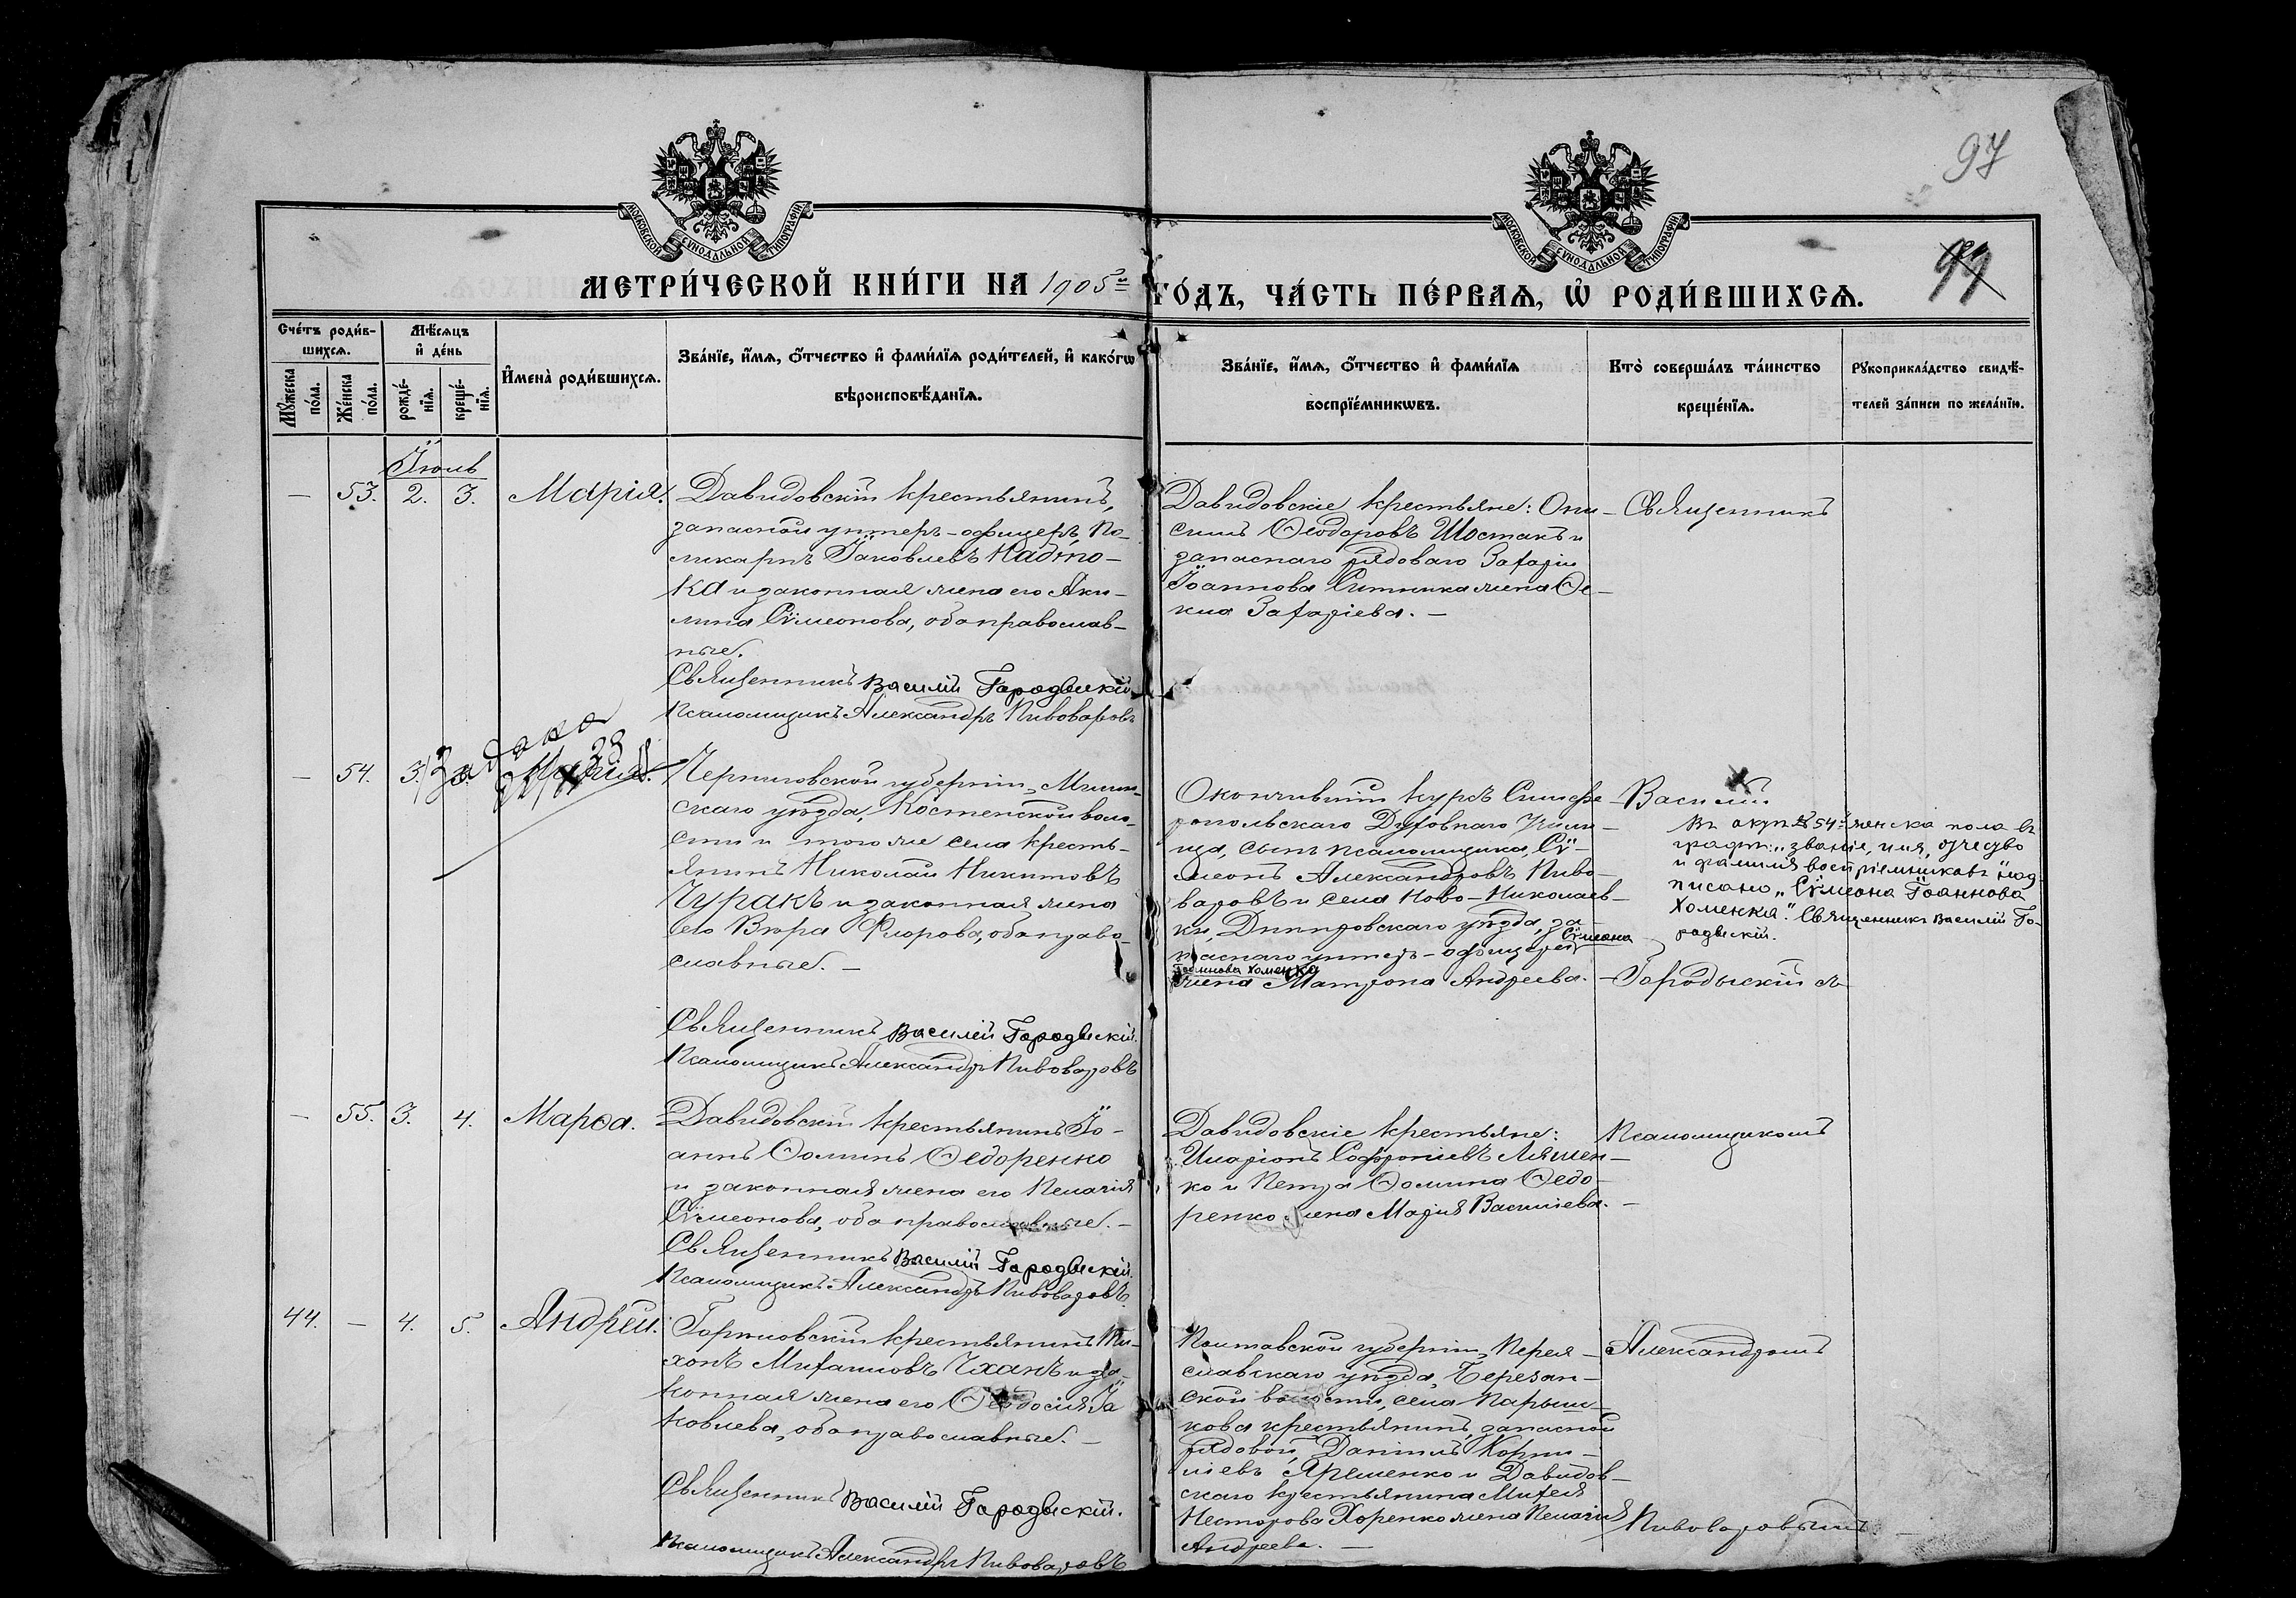 97
99
МОСКОВСКОЙ СѴНОДАЛЬНОЙ ТИПОГРАФІИ
МОСКОВСКОЙ СѴНОДАЛЬНОЙ ТИПОГРАФІИ
МЕТРИ́ЧЕСКОЙ КНИ́ГИ НА 1905й ГО́ДЪ, ЧА́СТЬ ПЕ́РВАѦ, Ѽ РОДИ́ВШИХСѦ.
Сче́тъ роди́в-
шихсѧ.
Мѣ́сѧцъ
и҆ де́нь
Мꙋ́жеска по́ла.
Же́нска по́ла.
рожде́-
нїѧ.
креще́-
нїѧ.
И҆мена̀ роди́вшихсѧ.
Зва́нїе, и҆́мѧ, ѻ҆́тчество и҆ фами́лїѧ роди́телей, и҆ како́гѡ
вѣроисповѣ́данїѧ.
Зва́нїе, и҆́мѧ, ѻ҆́тчество и҆ фами́лїѧ
воспрїе́мникѡвъ.
Кто̀ соверша́лъ та́инство
креще́нїѧ.
Рꙋкоприкла́дство свидѣ́-
телей за́писи по жела́нїю.
Іюль
— 53. 2. 3. Марія.
Давидовскій крестьянинъ,
запасной унтеръ-офицеръ, По-
ликарпъ Іаковлевъ Надто-
ка и законная жена его Аки-
лина Сѵмеонова, оба православ-
ные.
Священникъ Василій Городыскій.
Псаломщикъ Александръ Пивоваровъ
Давидовскіе крестьяне: Они-
симъ Ѳеодоровъ Шостакъ и
запаснаго рядоваго Захаріи
Іоаннова Ситника жена Ѳе-
кла Захаріева. —
Священникъ
— 54. 3. 3. Марія.
Черниговской губерніи, Мглин-
скаго уѣзда, Костенской воло-
сти и того же села кресть-
янинъ Николай Никитовъ
Чуракъ и законная жена
его Вѣра Флорова, оба право-
славные. —
Священникъ Василій Городыскій.
Псаломщикъ Александръ Пивоваровъ
Окончившій курсъ Симфе-
ропольскаго Духовнаго Учили-
ща, сынъ псаломщика, Сѵ-
меонъ Александровъ Пиво-
варовъ и села Ново-Николаев-
ки, Днѣпровскаго уѣзда, за-
Сѵмеона
паснаго унтеръ-офицера
Іоаннова Хоменка
жена Матрона Андреева. —
Василій
Въ актѣ № 54й женска пола въ
графѣ: „званіе, имя, отчество
и фамилія воспріемниковъ" над-
писано „Сѵмеона Іоаннова
Хоменка". Священникъ Василій Го-
родыскій.
Городыскій съ
— 55. 3. 4. Марѳа.
Давидовскій крестьянинъ Іо-
аннъ Ѳоминъ Ѳедоренко
и законная жена его Пелагія
Сѵмеонова, оба православные. —
Священникъ Василій Городыскій.
Псаломщикъ Александръ Пивоваровъ.
Давидовскіе крестьяне:
Иларіонъ Софроніевъ Ляшен-
ко и Петра Ѳомина Ѳедо-
ренко жена Марія Василіева. —
Псаломщикомъ
44. — 4. 5. Андрей.
крестьянинъ Ти-
хонъ Михаиловъ Чханъ и за-
конная жена его Ѳеодосія Іа-
ковлева, оба православные. —
Священникъ Василій Городыскій.
Псаломщикъ Александръ Пивоваровъ
Полтавской губерніи, Перея-
славскаго уѣзда, Березан-
ской волости, села Парыш-
кова крестьянинъ, запасной
рядовой, Даніилъ Корни-
ліевъ Яременко и Давидов-
скаго крестьянина Михея
Несторова Хоренко жена Пелагія
Андреева. —
Александромъ
Пивоваровымъ. —